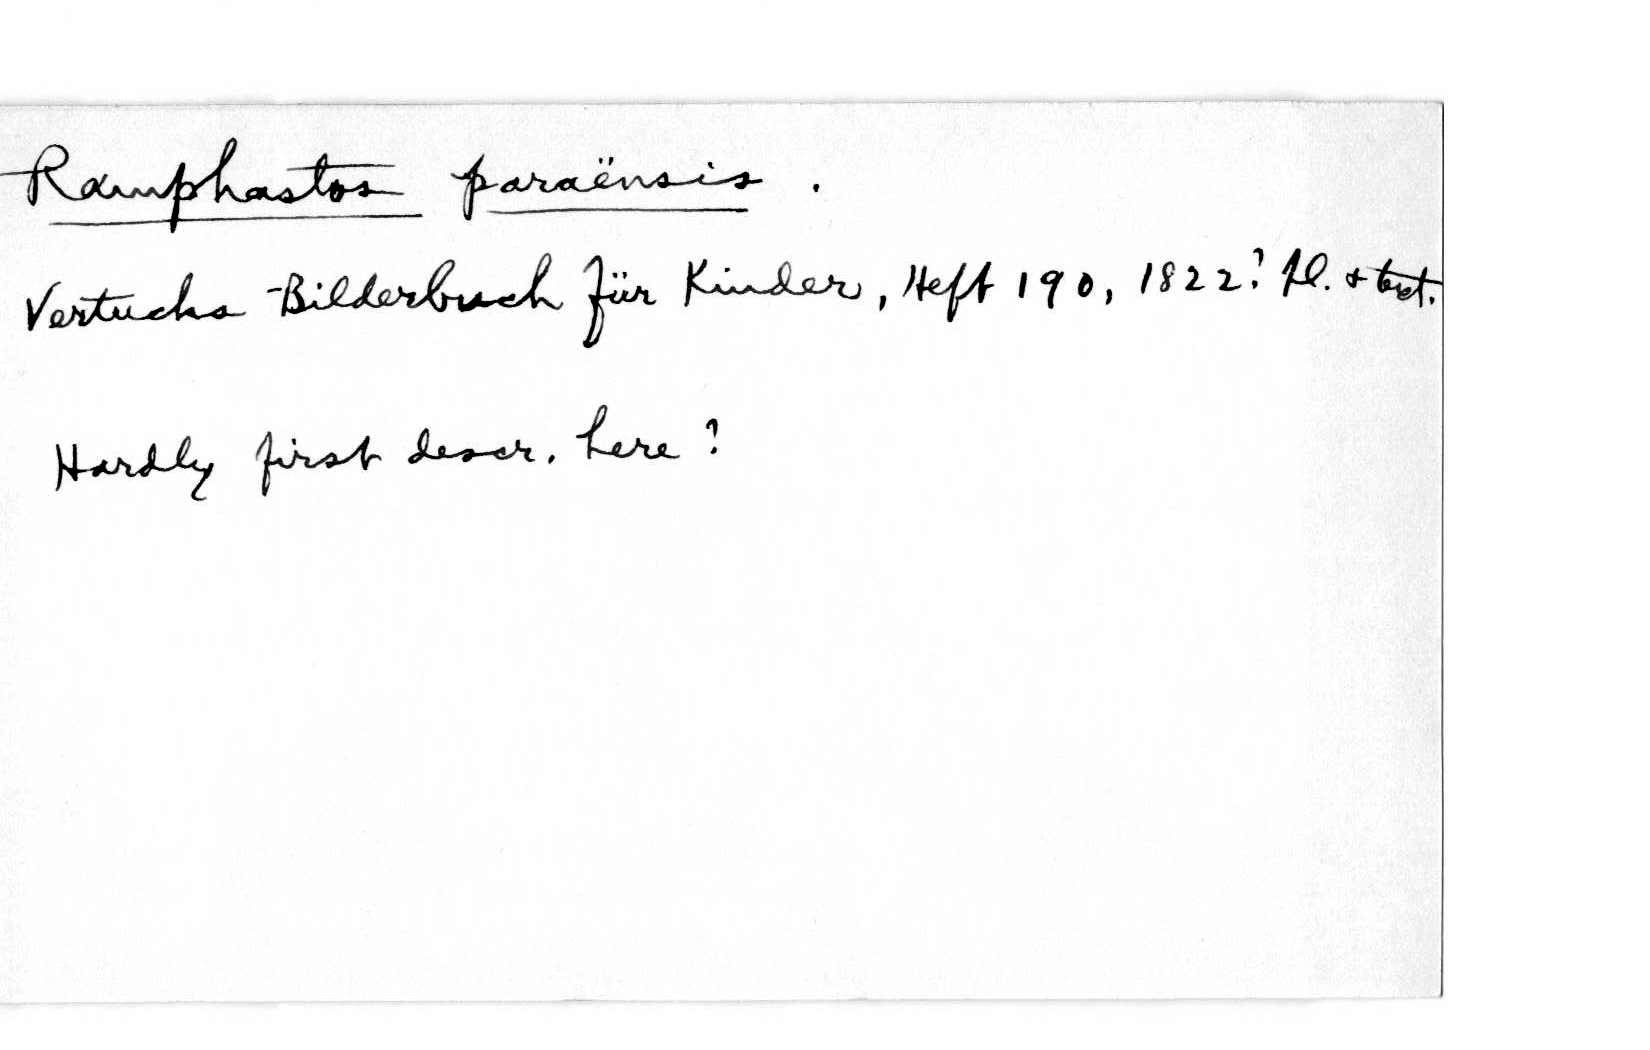 Ramphastos paraënsis .
Vertuchs Bilderbuch für Kinder, Heft 190, 1822? pl. & text.
Hardly first descr. here ?